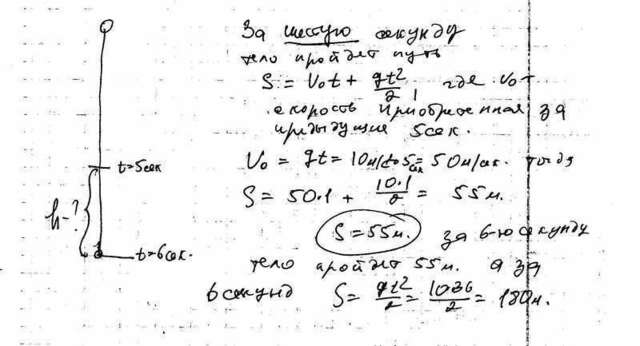 За шестую секунду
тело пройдет путь
S = V₀t + gt²/2, где v₀ -
скорость приобретенная за
предыдущие 5сек.
t=5сек
V₀ = gt = 10м/с·5сек = 50м/сек. тогда
S = 50·1 + 10·1/2 = 55м.
h-?
S=55м. за 6-ю секунду
t=6сек.
тело пройдет 55м. а за
6 секунд S = gt²/2 = 10·36/2 = 180м.